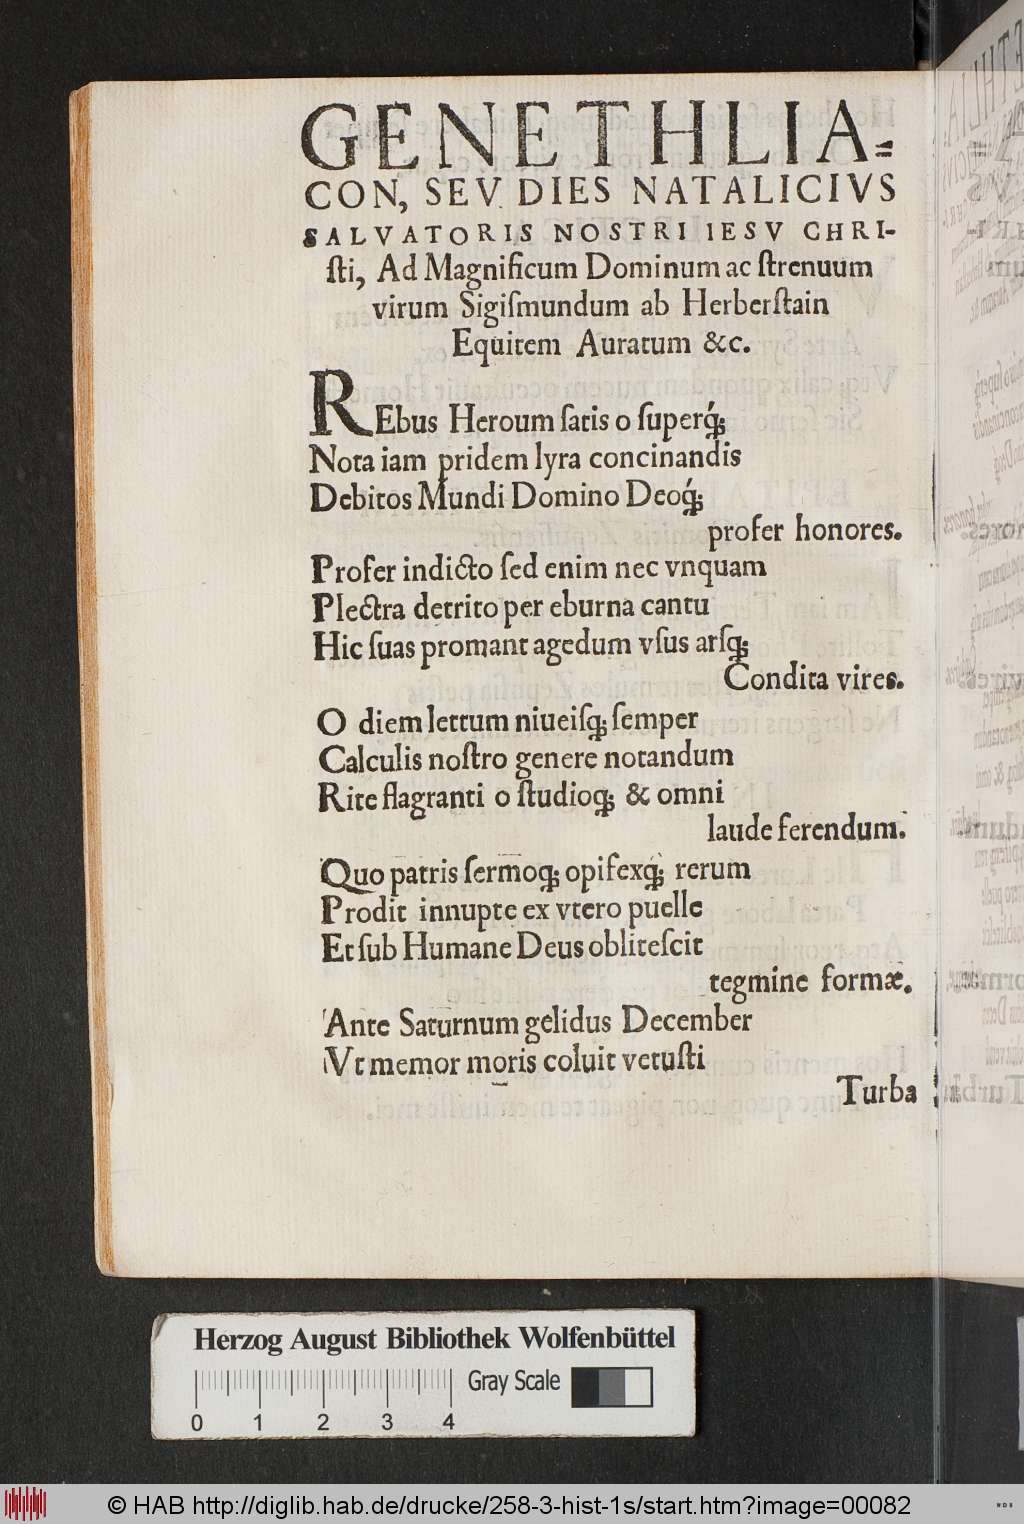 GENETHLIA⸗
CON, SEV DIES NATALICIVS
SALVATORIS NOSTRI IESV CHRI-
ſti, Ad Magnificum Dominum ac ſtrenuum
virum Sigiſmundum ab Herberſtain
Equitem Auratum &c.
REbus Heroum ſatis o ſuperq́;
Nota iam pridem lyra concinandis
Debitos Mundi Domino Deoq́;
profer honores.
Profer indicto ſed enim nec vnquam
Plectra detrito per eburna cantu
Hic ſuas promant agedum vſus arſq;
Condita vires.
O diem lettum niueiſq; ſemper
Calculis noſtro genere notandum
Rite flagranti o ſtudioq; & omni
laude ferendum.
Quo patris ſermoq; opifexq́; rerum
Prodit innupte ex vtero puelle
Et ſub Humane Deus obliteſcit
tegmine formæ.
Ante Saturnum gelidus December
Vt memor moris coluit vetuſti
Turba
Herzog August Bibliothek Wolfenbüttel
Gray Scale
0 1 2 3 4
© HAB http://diglib.hab.de/drucke/258-3-hist-1s/start.htm?image=00082